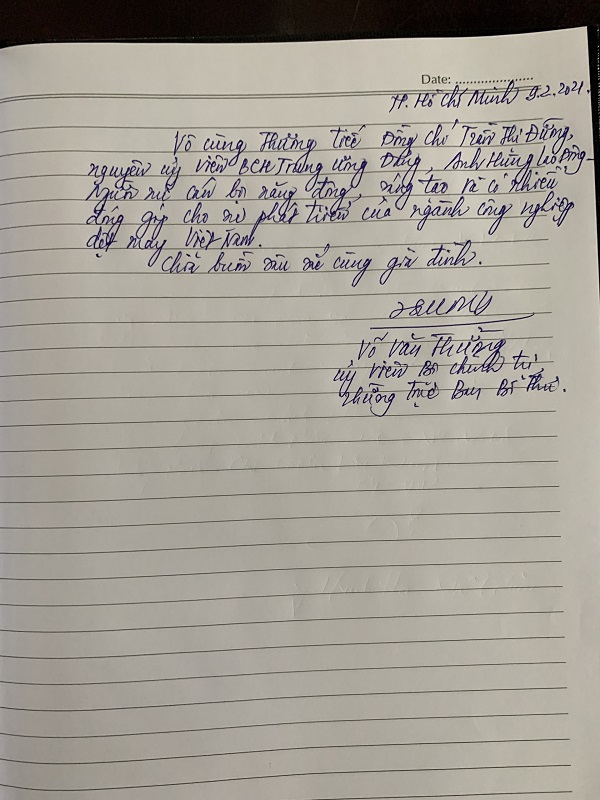 Date: ......................
TP. Hồ Chí Minh 9.2.2021.
Vô cùng thương tiếc Đồng chí Trần Thị Đường,
nguyên ủy viên BCH Trung ương Đảng, Anh Hùng Lao Động -
Người nữ cán bộ năng động, sáng tạo và có nhiều
đóng góp cho sự phát triển của ngành công nghiệp
dệt may Việt Nam.
Chia buồn sâu sắc cùng gia đình.
Võ Văn Thưởng
ủy viên Bộ chính trị,
Thường trực Ban Bí Thư.